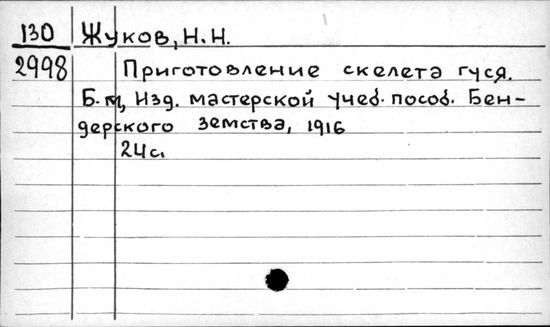 130 Жуков, Н.Н.
2998 Приготовление скелета гуся.
Б.м, Изд. мастерской учеб. пособ. Бен-
дерского земства, 1916
24с.